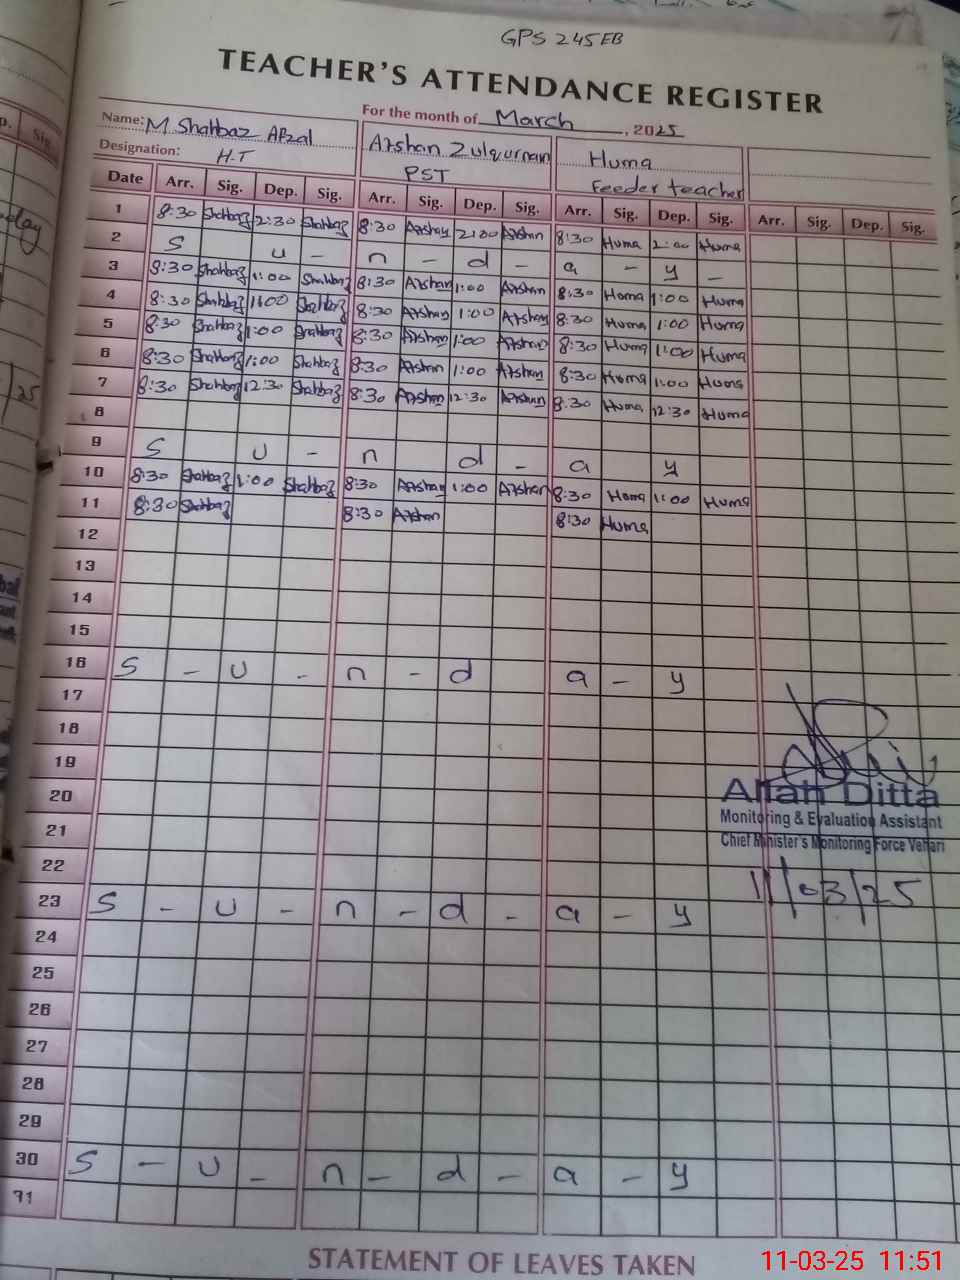 GPS 245EB
TEACHER'S ATTENDANCE REGISTER
For the month of March, 2025
Name: M Shahbaz Afzal Arshan Zulqurnain Huma
Designation: H.T PST Feeder teacher
Date Arr. Sig. Dep. Sig. Arr. Sig. Dep. Sig. Arr. Sig. Dep. Sig. Arr. Sig. Dep. Sig.
1 8:30 Shahbaz 2:30 Shahbaz 8:30 Arshan 2:00 Arshan 8:30 Huma 2:00 Huma
2 S u - n - d - a - y -
3 8:30 Shahbaz 1:00 Shahbaz 8:30 Arshan 1:00 Arshan 8:30 Huma 1:00 Huma
4 8:30 Shahbaz 1:00 Shahbaz 8:30 Arshan 1:00 Arshan 8:30 Huma 1:00 Huma
5 8:30 Shahbaz 1:00 Shahbaz 8:30 Arshan 1:00 Arshan 8:30 Huma 1:00 Huma
6 8:30 Shahbaz 1:00 Shahbaz 8:30 Arshan 1:00 Arshan 8:30 Huma 1:00 Huma
7 8:30 Shahbaz 12:30 Shahbaz 8:30 Arshan 12:30 Arshan 8:30 Huma 12:30 Huma
8
9 S U - n d - a y
10 8:30 Shahbaz 1:00 Shahbaz 8:30 Arshan 1:00 Arshan 8:30 Huma 1:00 Huma
11 8:30 Shahbaz 8:30 Arshan 8:30 Huma
12
13
14
15
16 S - U - n - d a - y
17
18
19
20
Allah Ditta
Monitoring & Evaluation Assistant
21
Chief Minister's Monitoring Force Vehari
22
11/03/25
23 S - U - n - d - a - y
24
25
26
27
28
29
30 S - U - n - d - a - y
31
STATEMENT OF LEAVES TAKEN
11-03-25 11:51